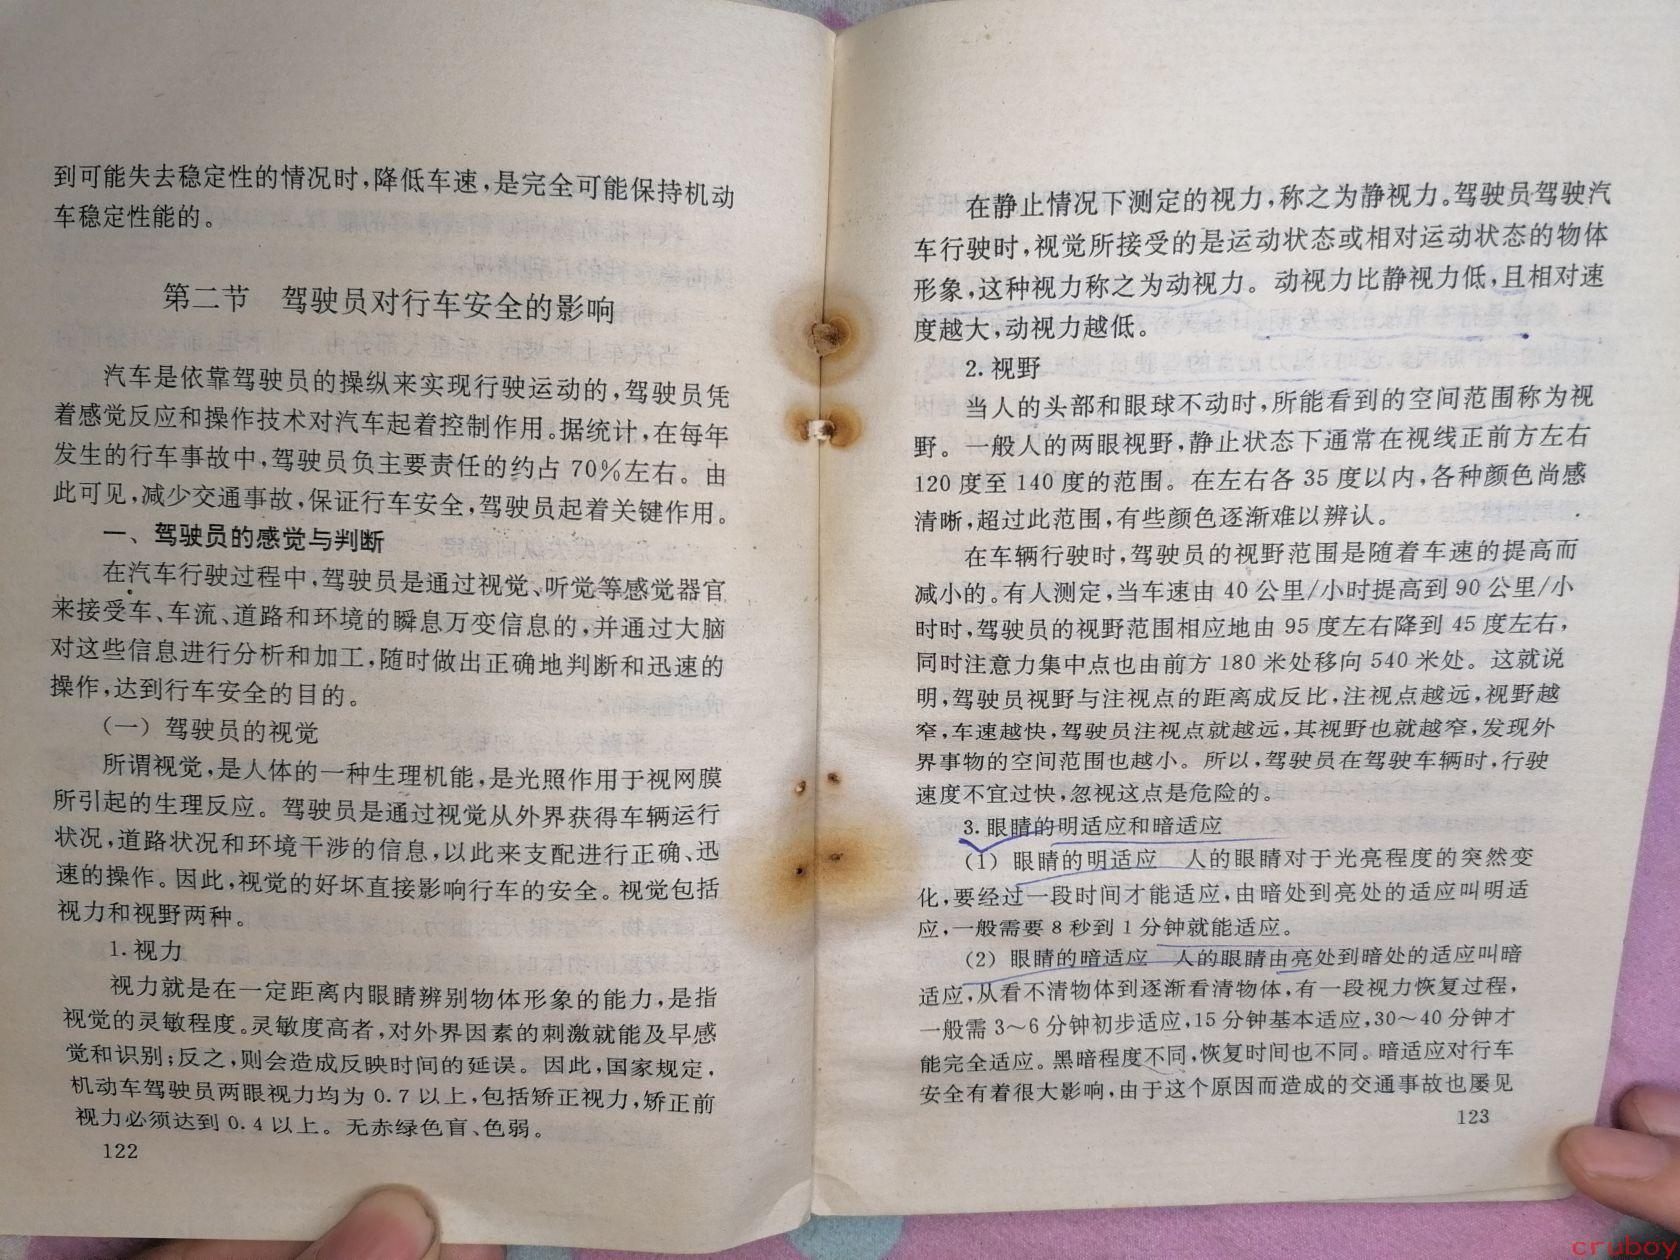 到可能失去稳定性的情况时,降低车速,是完全可能保持机动
车稳定性能的。
第二节 驾驶员对行车安全的影响
汽车是依靠驾驶员的操纵来实现行驶运动的,驾驶员凭
着感觉反应和操作技术对汽车起着控制作用。据统计,在每年
发生的行车事故中,驾驶员负主要责任的约占70%左右。由
此可见,减少交通事故,保证行车安全,驾驶员起着关键作用。
一、驾驶员的感觉与判断
在汽车行驶过程中,驾驶员是通过视觉、听觉等感觉器官
来接受车、车流、道路和环境的瞬息万变信息的,并通过大脑
对这些信息进行分析和加工,随时做出正确地判断和迅速的
操作,达到行车安全的目的。
(一)驾驶员的视觉
所谓视觉,是人体的一种生理机能,是光照作用于视网膜
所引起的生理反应。驾驶员是通过视觉从外界获得车辆运行
状况,道路状况和环境干涉的信息,以此来支配进行正确、迅
速的操作。因此,视觉的好坏直接影响行车的安全。视觉包括
视力和视野两种。
1.视力
视力就是在一定距离内眼睛辨别物体形象的能力,是指
视觉的灵敏程度。灵敏度高者,对外界因素的刺激就能及早感
觉和识别;反之,则会造成反映时间的延误。因此,国家规定,
机动车驾驶员两眼视力均为0.7以上,包括矫正视力,矫正前
视力必须达到0.4以上。无赤绿色盲、色弱。
122
在静止情况下测定的视力,称之为静视力。驾驶员驾驶汽
车行驶时,视觉所接受的是运动状态或相对运动状态的物体
形象,这种视力称之为动视力。动视力比静视力低,且相对速
度越大,动视力越低。
2.视野
当人的头部和眼球不动时,所能看到的空间范围称为视
野。一般人的两眼视野,静止状态下通常在视线正前方左右
120度至140度的范围。在左右各35度以内,各种颜色尚感
清晰,超过此范围,有些颜色逐渐难以辨认。
在车辆行驶时,驾驶员的视野范围是随着车速的提高而
减小的。有人测定,当车速由40公里/小时提高到90公里/小
时时,驾驶员的视野范围相应地由95度左右降到45度左右,
同时注意力集中点也由前方180米处移向540米处。这就说
明,驾驶员视野与注视点的距离成反比,注视点越远,视野越
窄,车速越快,驾驶员注视点就越远,其视野也就越窄,发现外
界事物的空间范围也越小。所以,驾驶员在驾驶车辆时,行驶
速度不宜过快,忽视这点是危险的。
3.眼睛的明适应和暗适应
(1)眼睛的明适应 人的眼睛对于光亮程度的突然变
化,要经过一段时间才能适应,由暗处到亮处的适应叫明适
应,一般需要8秒到1分钟就能适应。
(2)眼睛的暗适应 人的眼睛由亮处到暗处的适应叫暗
适应,从看不清物体到逐渐看清物体,有一段视力恢复过程,
一般需3～6分钟初步适应,15分钟基本适应,30～40分钟才
能完全适应。黑暗程度不同,恢复时间也不同。暗适应对行车
安全有着很大影响,由于这个原因而造成的交通事故也屡见
123
cruboy